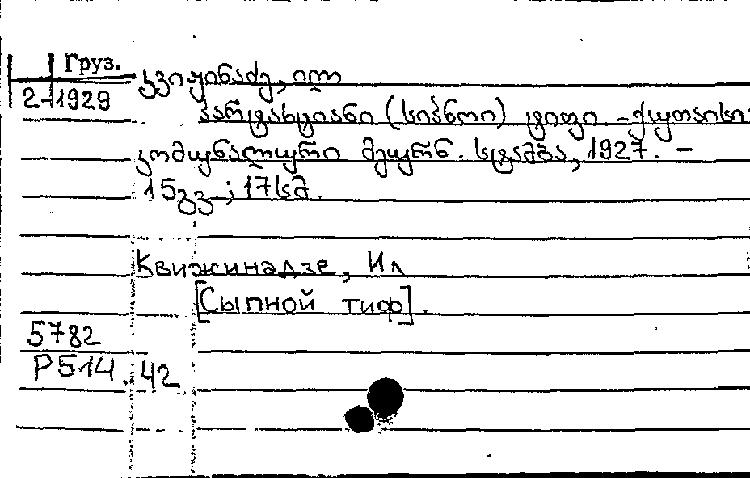 Груз.
კვიჟინაძე, ილ
2-1929
პარტახტიანი (სიპნოი) ტიფი. - ქუთაისი:
კომუნალური მეურნ. სტამბა, 1927. -
15გვ ; 17სმ.
Квижинадзе, Ил
[Сыпной тиф].
5782
P514.42